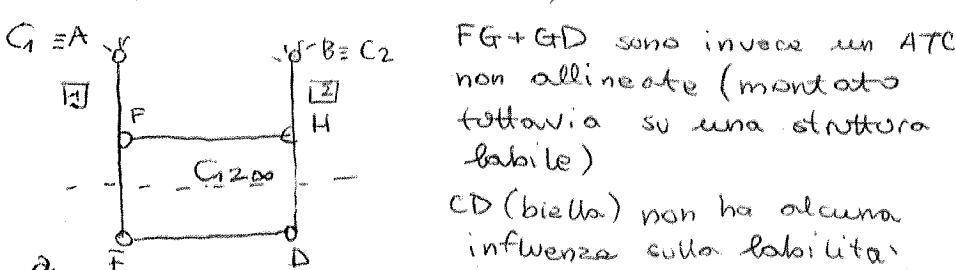 C1 ≡A
B≡ C2
1
2
F
H
C12∞
E
D
FG+GD sono invece un ATC
non allineate (montato
tuttavia su una struttura
labile)
CD (biella) non ha alcuna
influenza sulla labilità